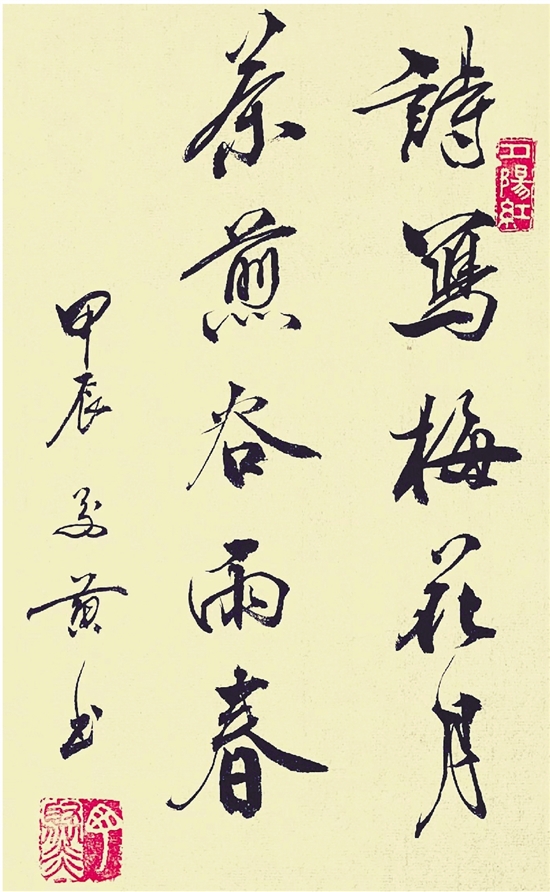 詩寫梅花月
茶煎谷雨春
甲辰 黄书
夕陽紅